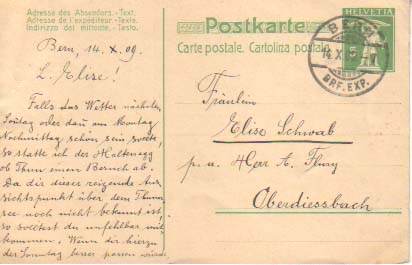 Adresse des Absenders. - Text.
Adresse de l'expéditeur. - Texte.
Indirizzo del mittente. - Testo.
Bern, 14. X. 09.
L. Elise!
Falls das Wetter nächsten
Sonntag oder dann am Montag
Nachmittag schön sein sollte,
so statte ich der Haltenegg
ob Thun einen Besuch ab.
Da dir dieser reizende Aus-
sichtspunkt über dem Thuner-
see noch nicht bekannt ist,
so solltest du unfehlbar mit-
kommen. Wenn dir hierzu
der Sonntag besser passen würde
Postkarte
Carte postale. Cartolina postale.
HELVETIA
5
BERN
14. X.
BRF. EXP.
Fräulein
Elise Schwab
p. a. Herr A. Flury
Oberdiessbach